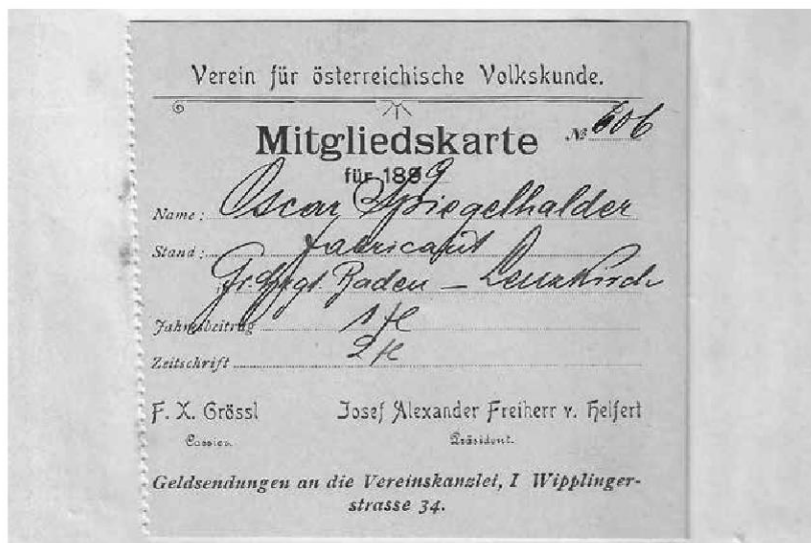 Verein für österreichische Volkskunde.
Mitgliedskarte № 606
für 1899
Name: Oscar Spiegelhalder
Stand: Fabricant
Baden – Lenzkirch
Jahresbeitrag 1 fl
Zeitschrift 2 fl
F. X. Grössl Josef Alexander Freiherr v. Helfert
Cassier. Präsident.
Geldsendungen an die Vereinskanzlei, I Wipplinger-
strasse 34.